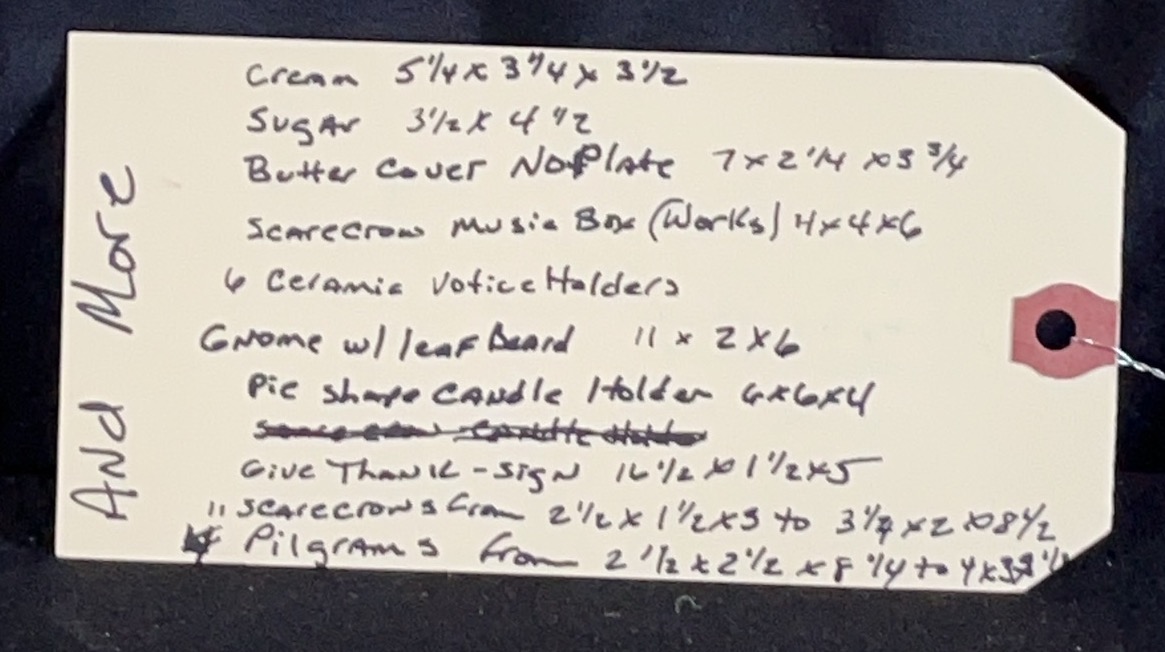 Cream 5 1/4 x 3 1/4 x 3 1/2
Sugar 3 1/2 x 4 1/2
Butter Cover No Plate 7 x 2 1/4 x 3 3/4
Scarecrow Music Box (Works) 4 x 4 x 6
6 Ceramic Votice Holders
Gnome w/ leaf Beard 11 x 2 x 6
Pie shape Candle Holder 6 x 6 x 4
Give Thank - Sign 16 1/2 x 1 1/2 x 5
11 Scarecrows from 2 1/2 x 1 1/2 x 5 to 3 1/4 x 2 x 8 1/2
4 Pilgrams from 2 1/2 x 2 1/2 x 8 1/4 to 4 x
And More